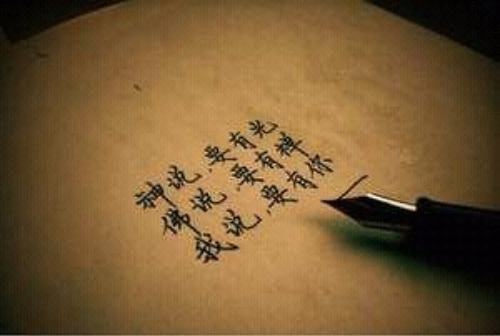 神说，要有光
佛说，要有禅
我说，要有你